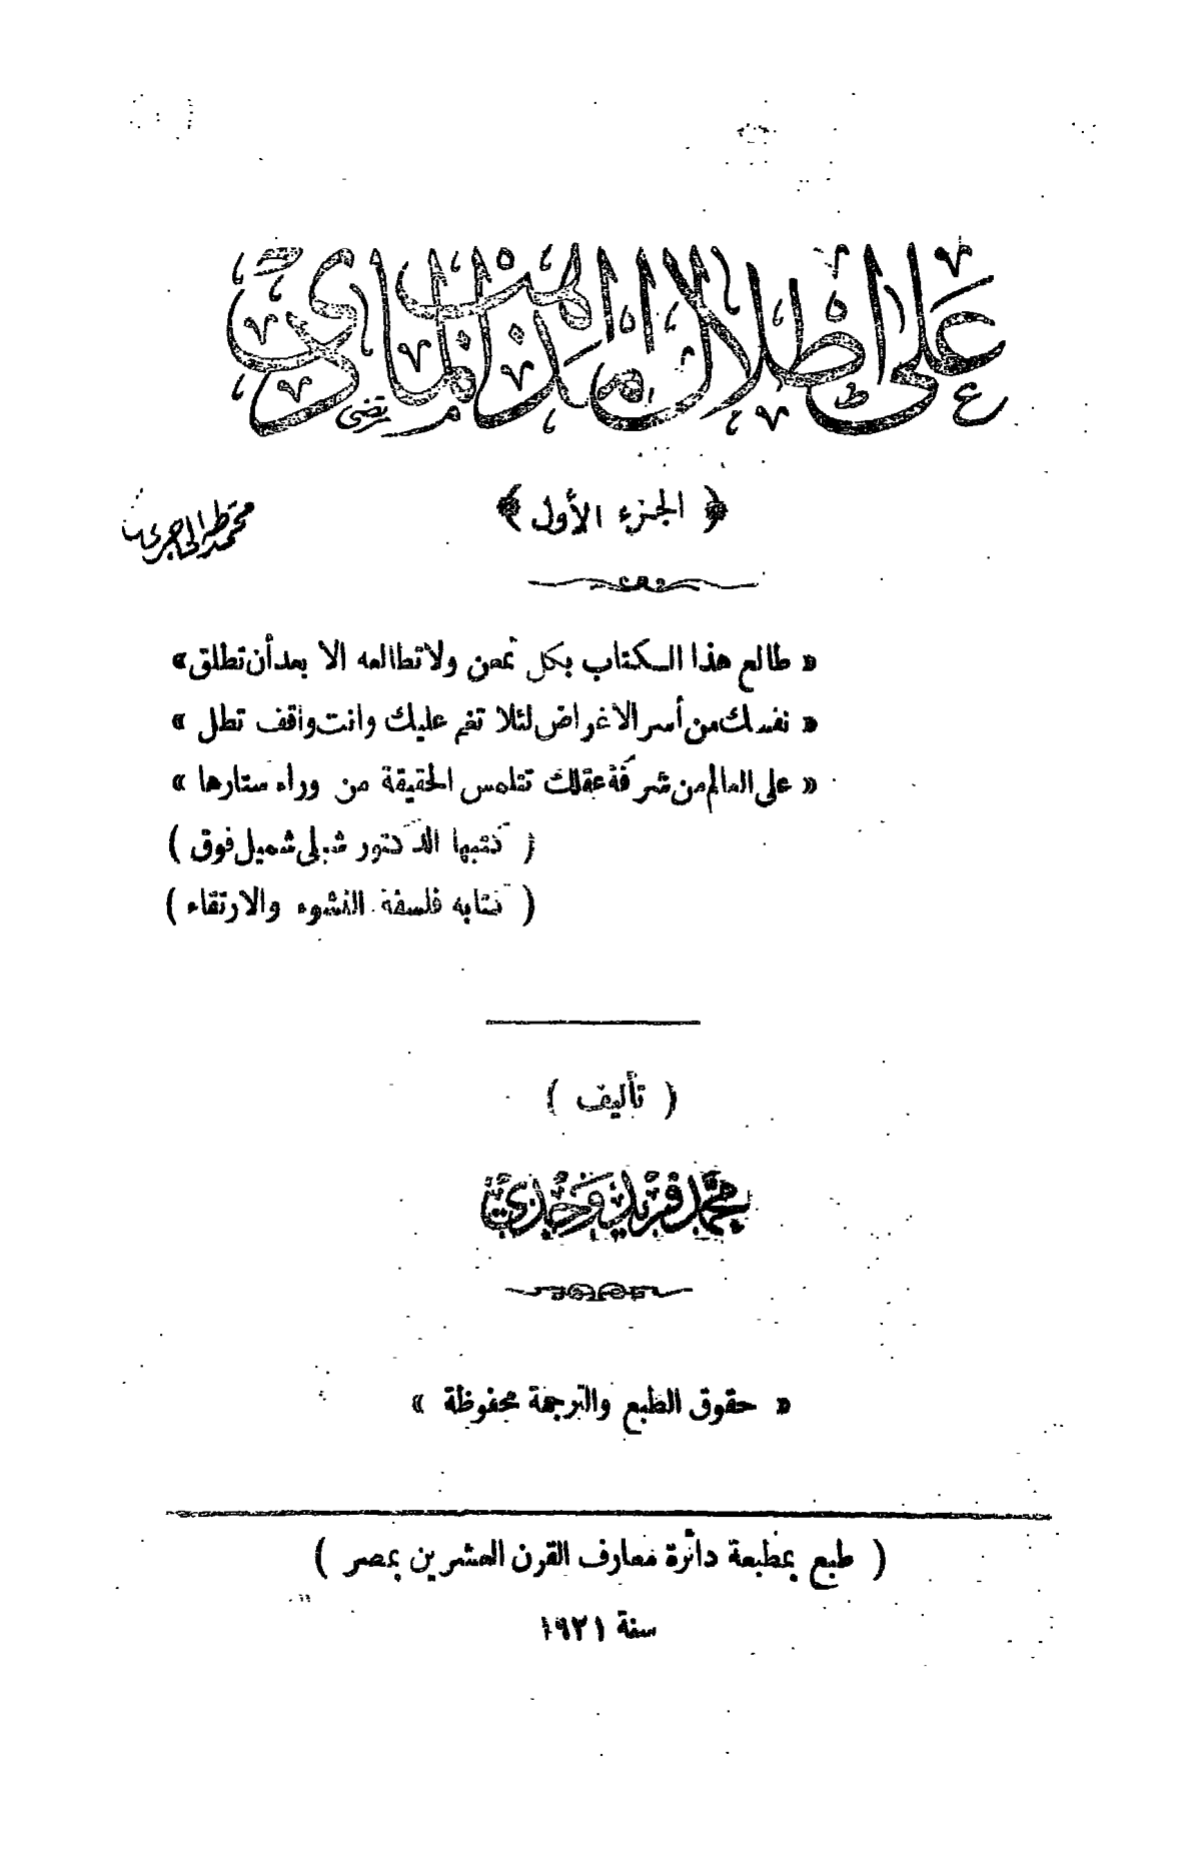 على اطلال المذهب المادي
مرتضى
﴿ الجزء الأول ﴾
محمد طه الحاجري
« طالع هذا الكتاب بكل تمعن ولا تطالعه الا بعد أن تطلق »
« نفسك من أسر الاغراض لئلا تغم عليك وانت واقف تطل »
« على العالم من شرفة عقلك تتلمس الحقيقة من وراء ستارها »
( كتبها الدكتور شبلى شميل فوق )
( كتابه فلسفة النشوء والارتقاء )
( تأليف )
محمد فريد وجدي
« حقوق الطبع والترجمة محفوظة »
( طبع بمطبعة دائرة معارف القرن العشرين بمصر )
سنة ١٩٢١